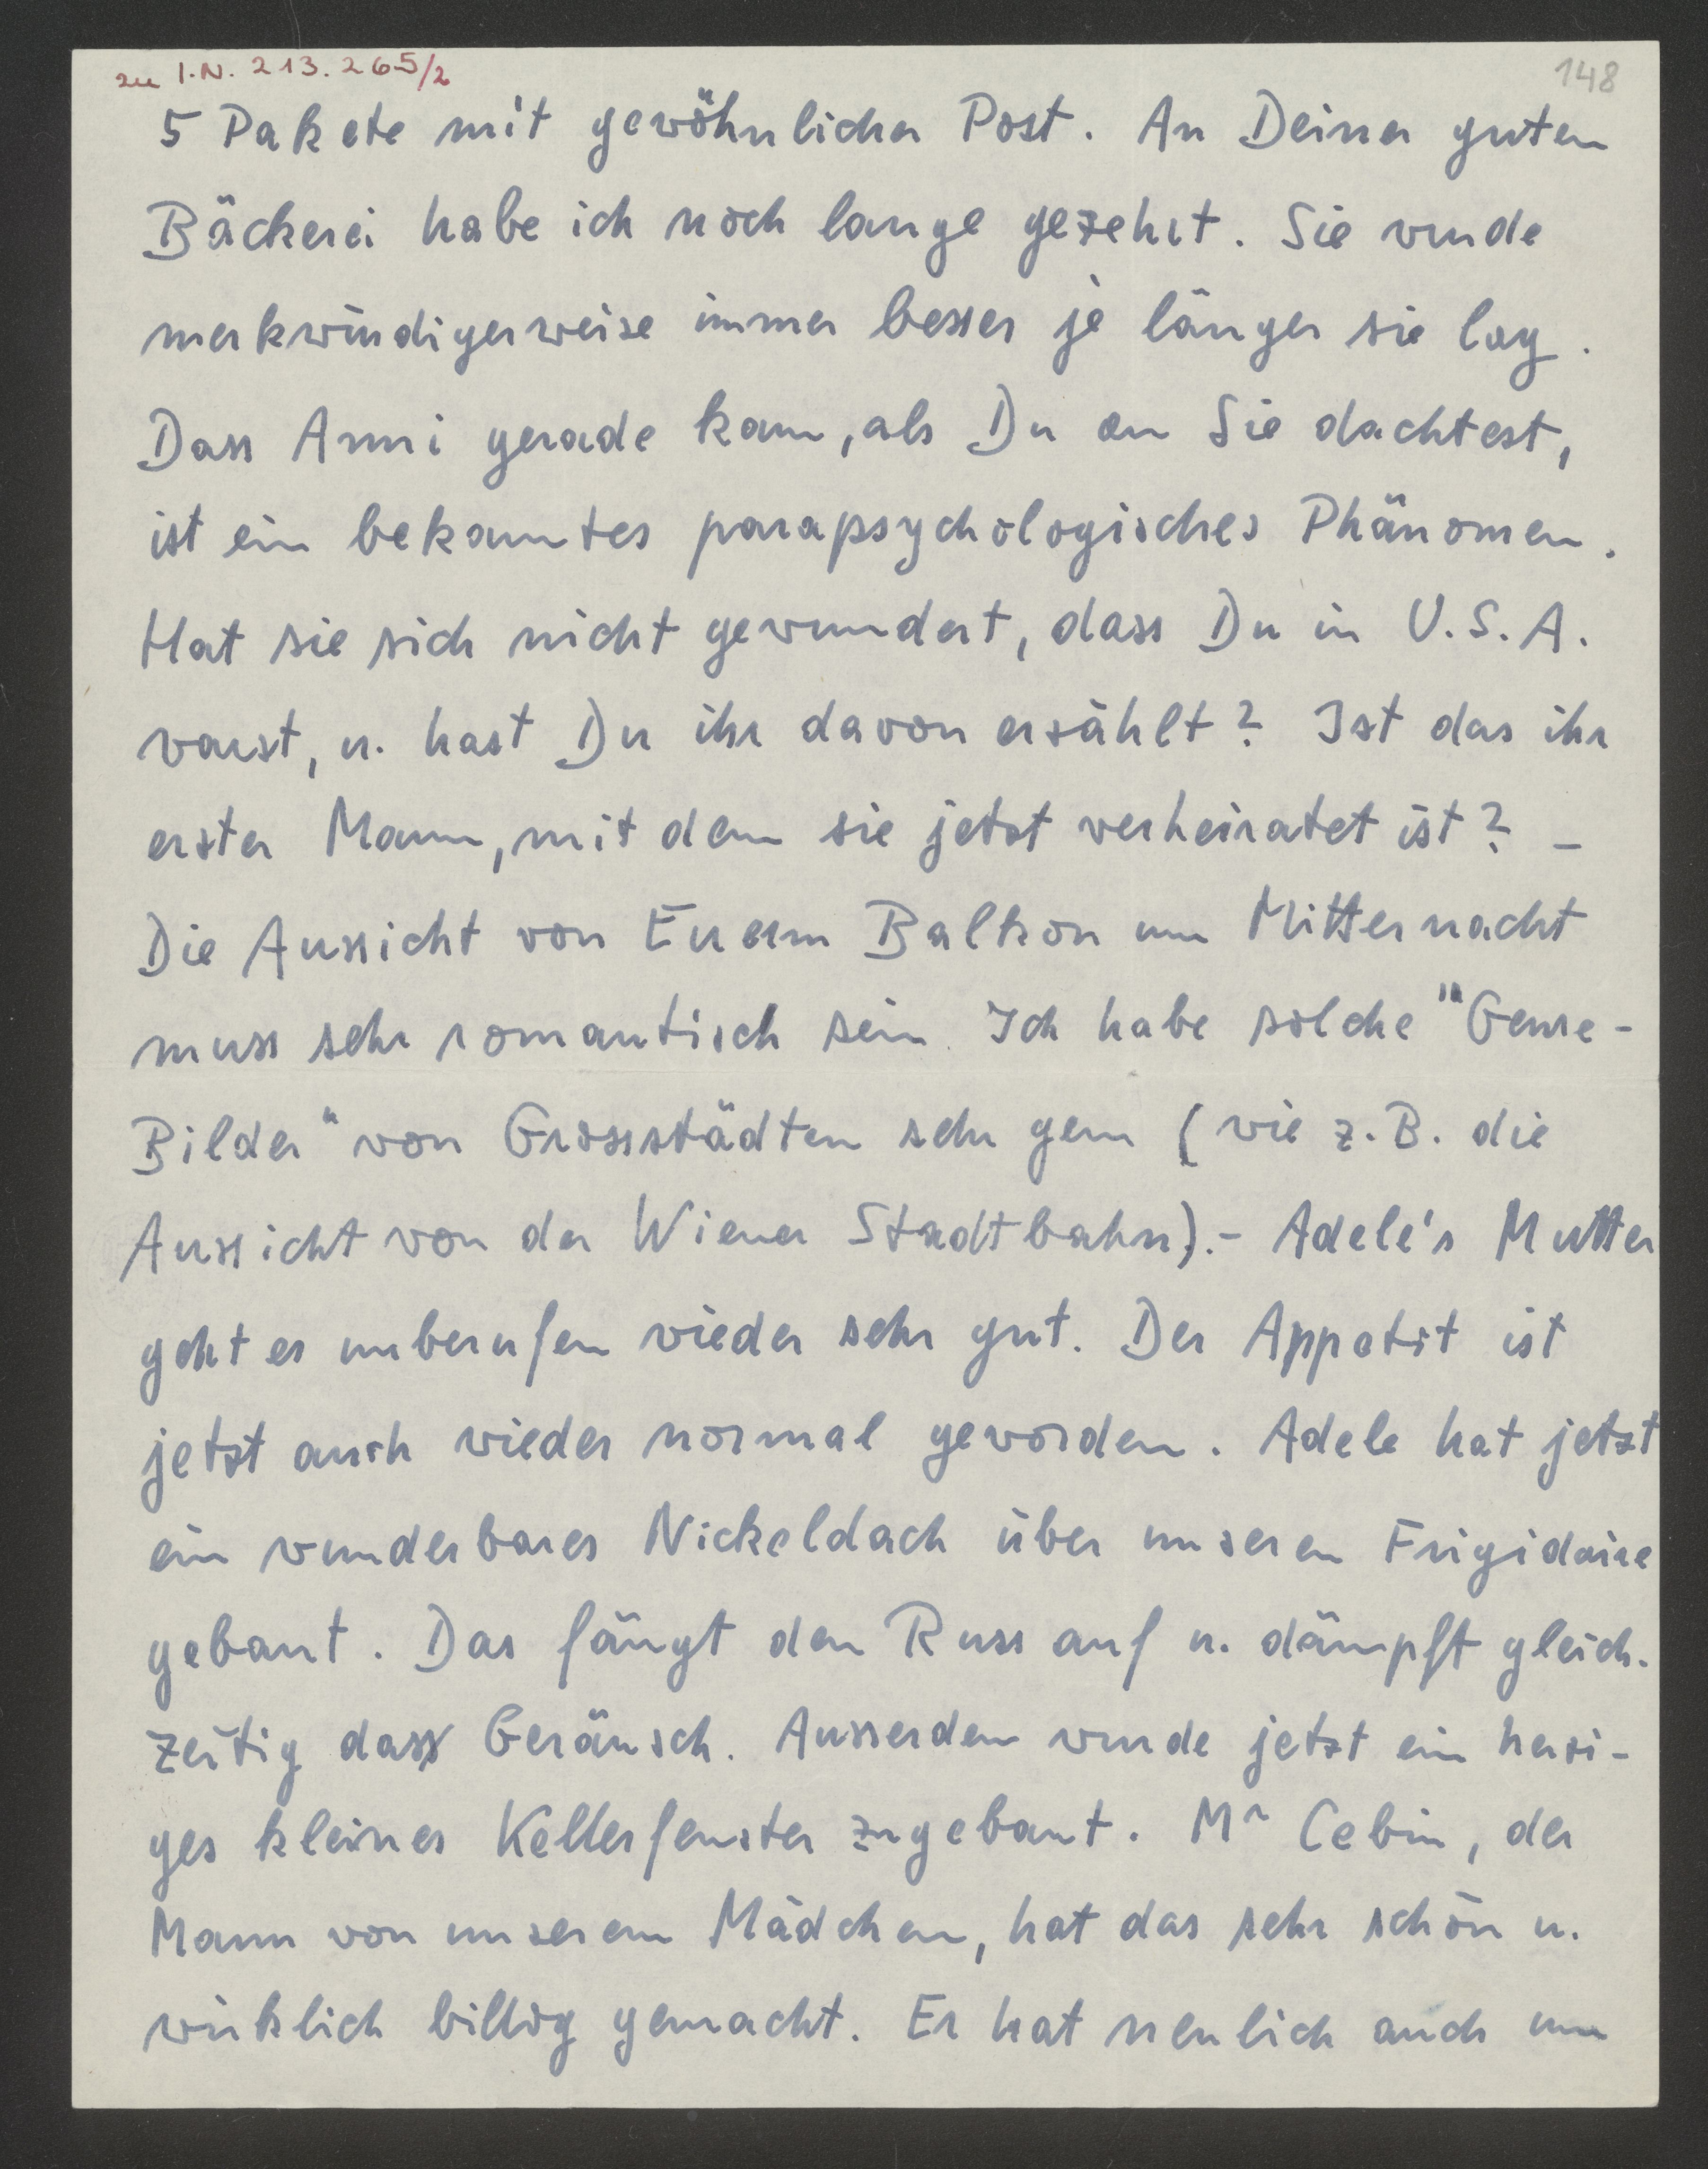 zu I.N. 213.265/2
148
5 Pakete mit gewöhnlicher Post. An Deiner guten
Bäckerei habe ich noch lange gezehrt. Sie wurde
merkwürdigerweise immer besser je länger sie lag.
Dass Anni gerade kam, als Du an Sie dachtest,
ist ein bekanntes parapsychologisches Phänomen.
Hat sie sich nicht gewundert, dass Du in U.S.A.
warst, u. hast Du ihr davon erzählt? Ist das ihr
erster Mann, mit dem sie jetzt verheiratet ist? –
Die Aussicht von Euerm Balkon um Mitternacht
muss sehr romantisch sein. Ich habe solche "Genre-
Bilder" von Grossstädten sehr gern (wie z.B. die
Aussicht von der Wiener Stadtbahn).– Adele's Mutter
geht es unberufen wieder sehr gut. Der Appetit ist
jetzt auch wieder normal geworden. Adele hat jetzt
ein wunderbares Nickeldach über unseren Frigidaire
gebaut. Das fängt den Russ auf u. dämpft gleich-
zeitig das Geräusch. Ausserdem wurde jetzt ein herzi-
ges kleines Kellerfenster zugebaut. Mr Cebin, der
Mann von unserem Mädchen, hat das sehr schön u.
wirklich billig gemacht. Er hat neulich auch um